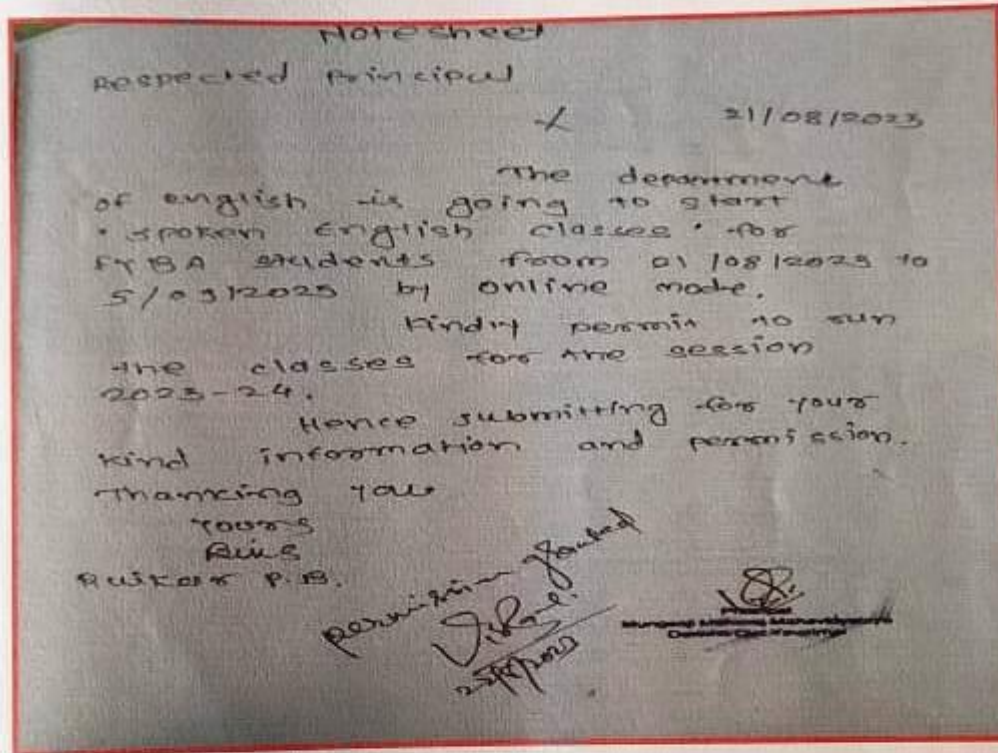 Notesheet
Respected Principal
21/08/2023
The department
of english is going to start
" spoken English classes " for
FYBA students from 01/08/2023 to
5/09/2023 by online mode.
Kindly permit to run
the classes for the session
2023-24.
Hence submitting for your
kind information and permission.
Thanking you
Yours
Ruikar P.B.
permission granted